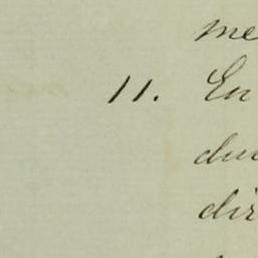 me
11. En
du
dir